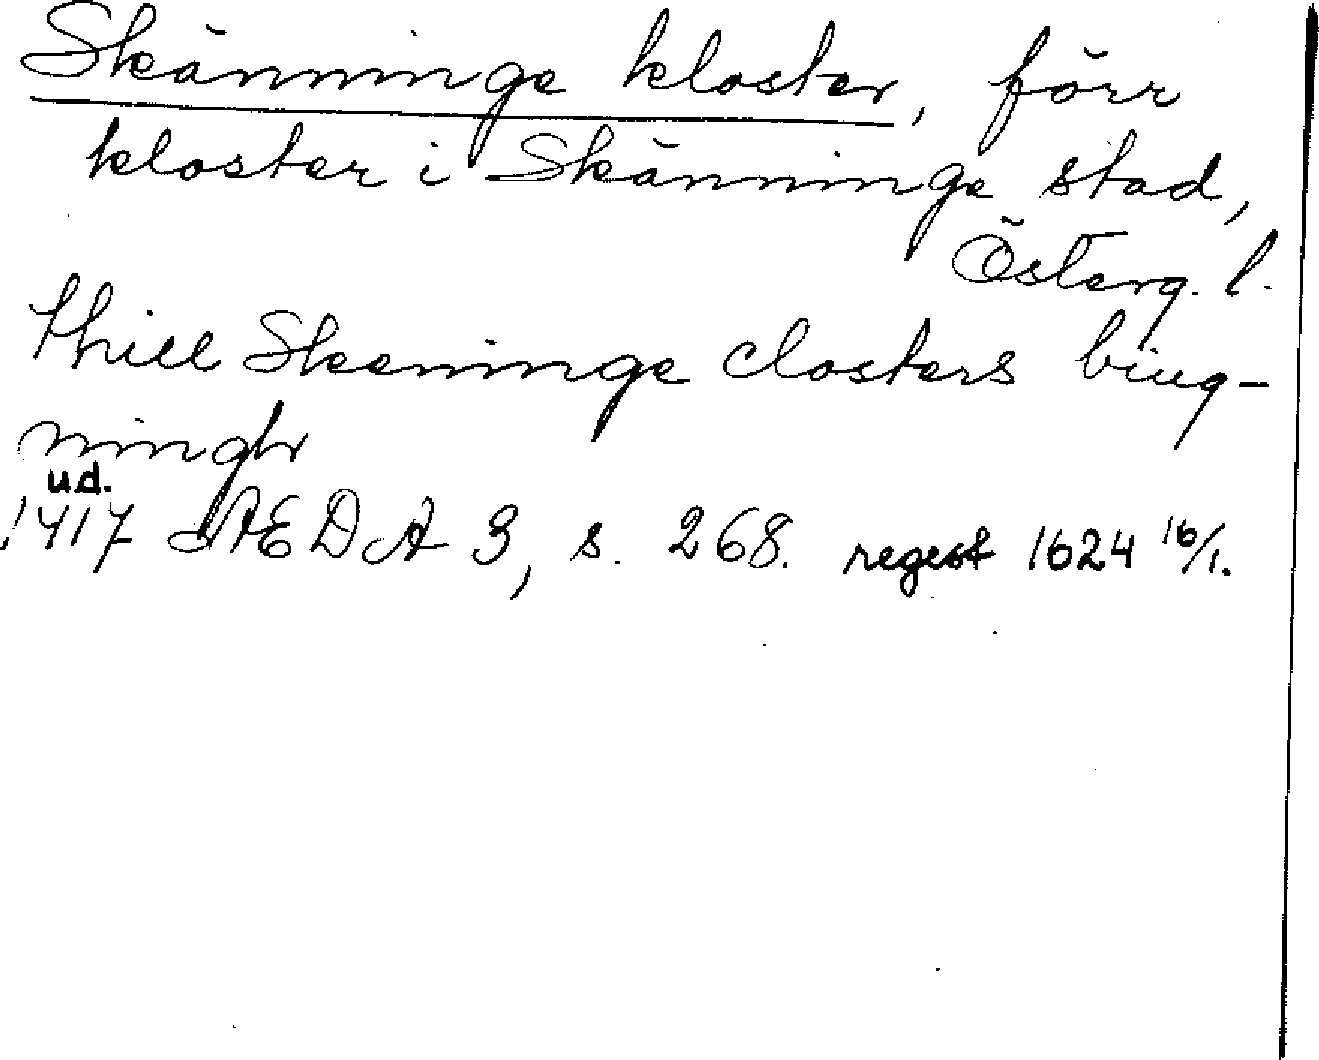 Skänninge kloster, förr
kloster i Skänninge stad,
Österg. l.
thill Skeninge closters biug-
ningh
u.d.
1417 ÄEDA 3, s. 268. regest 1624 16/1.